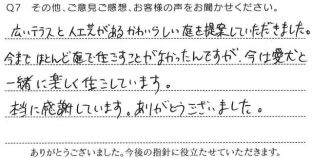 Q7 その他、ご意見ご感想、お客様の声をお聞かせください。
広いテラスと人工芝があるかわいらしい庭を提案していただきました。
今まで ほとんど庭で過ごすことがなかったんですが、今は愛犬と
一緒に楽しく過ごしています。
本当に感謝しています。ありがとうございました。
ありがとうございました。今後の指針に役立たせていただきます。